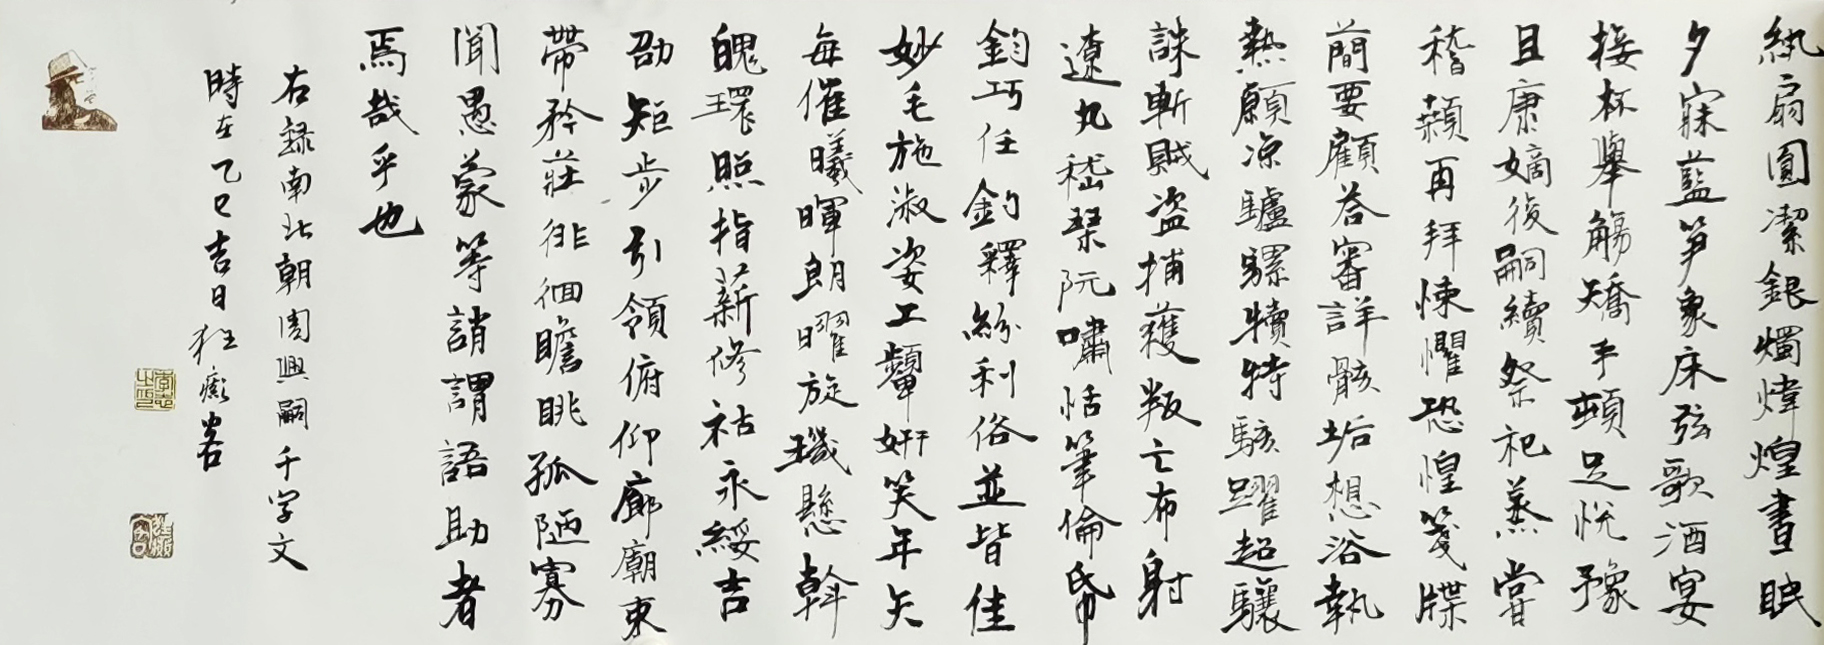 紈扇圓潔銀燭煒煌晝眠
夕寐藍笋象床弦歌酒宴
接杯舉觴矯手頓足悅豫
且康嫡後嗣續祭祀蒸嘗
稽顙再拜悚懼恐惶箋牒
簡要顧答審詳骸垢想浴執
熱願涼驢騾犢特駭躍超驤
誅斬賊盜捕獲叛亡布射
遼丸嵇琴阮嘯恬筆倫紙
鈞巧任釣釋紛利俗並皆佳
妙毛施淑姿工顰妍笑年矢
每催曦暉朗曜旋璣懸斡
魄環照指薪修祜永綏吉
劭矩步引領俯仰廊廟束
帶矜莊徘徊瞻眺孤陋寡
聞愚蒙等誚謂語助者
焉哉乎也
右録南北朝周興嗣千字文
時在乙巳吉日狂癲客